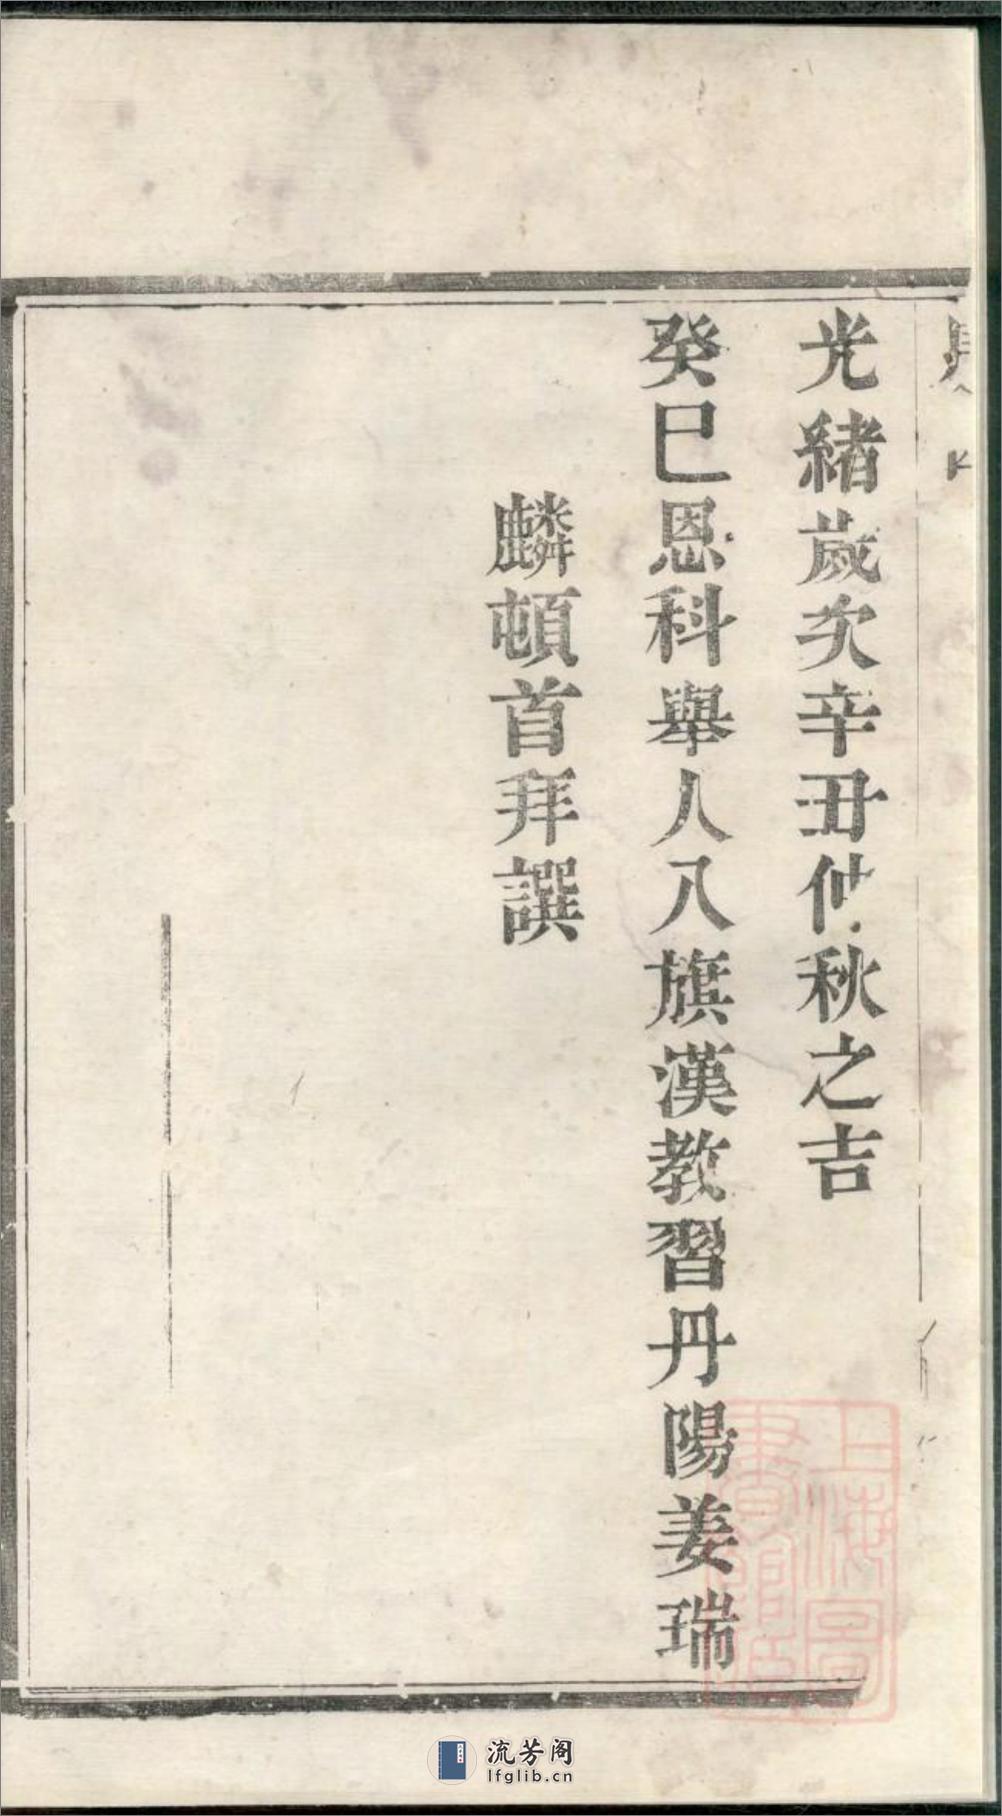 光緒歲次辛丑仲秋之吉
癸巳恩科舉人八旗漢教習丹陽姜瑞
麟頓首拜譔
上海圖
書館藏
流芳阁
lfglib.cn